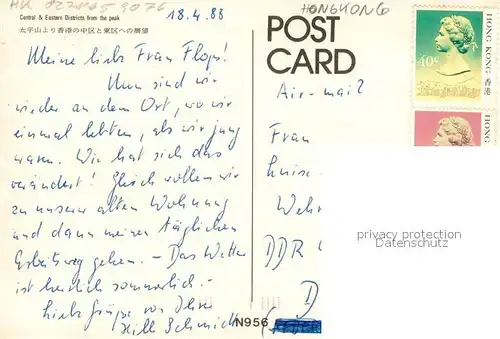 HK
18.4.88
HONGKONG
Central & Eastern Districts from the peak
太平山より香港の中区と東区への展望
Meine liebe Frau Flops!
Nun sind wir
wieder an dem Ort, wo wir
einmal lebten, als wir jung
waren. Wie hat sich das
verändert! Gleich wollen wir
zu unserer alten Wohnung
und dann meinen täglichen
Arbeitsweg gehen. – Das Wetter
ist herrlich sommerlich. –
Liebe Grüße von Ihrer
Hill Schmidt
POST
CARD
Air-mail
Frau
Luise
Wehr
DDR
D
N956
HONG KONG 香港
40c
HONG
privacy protection
Datenschutz